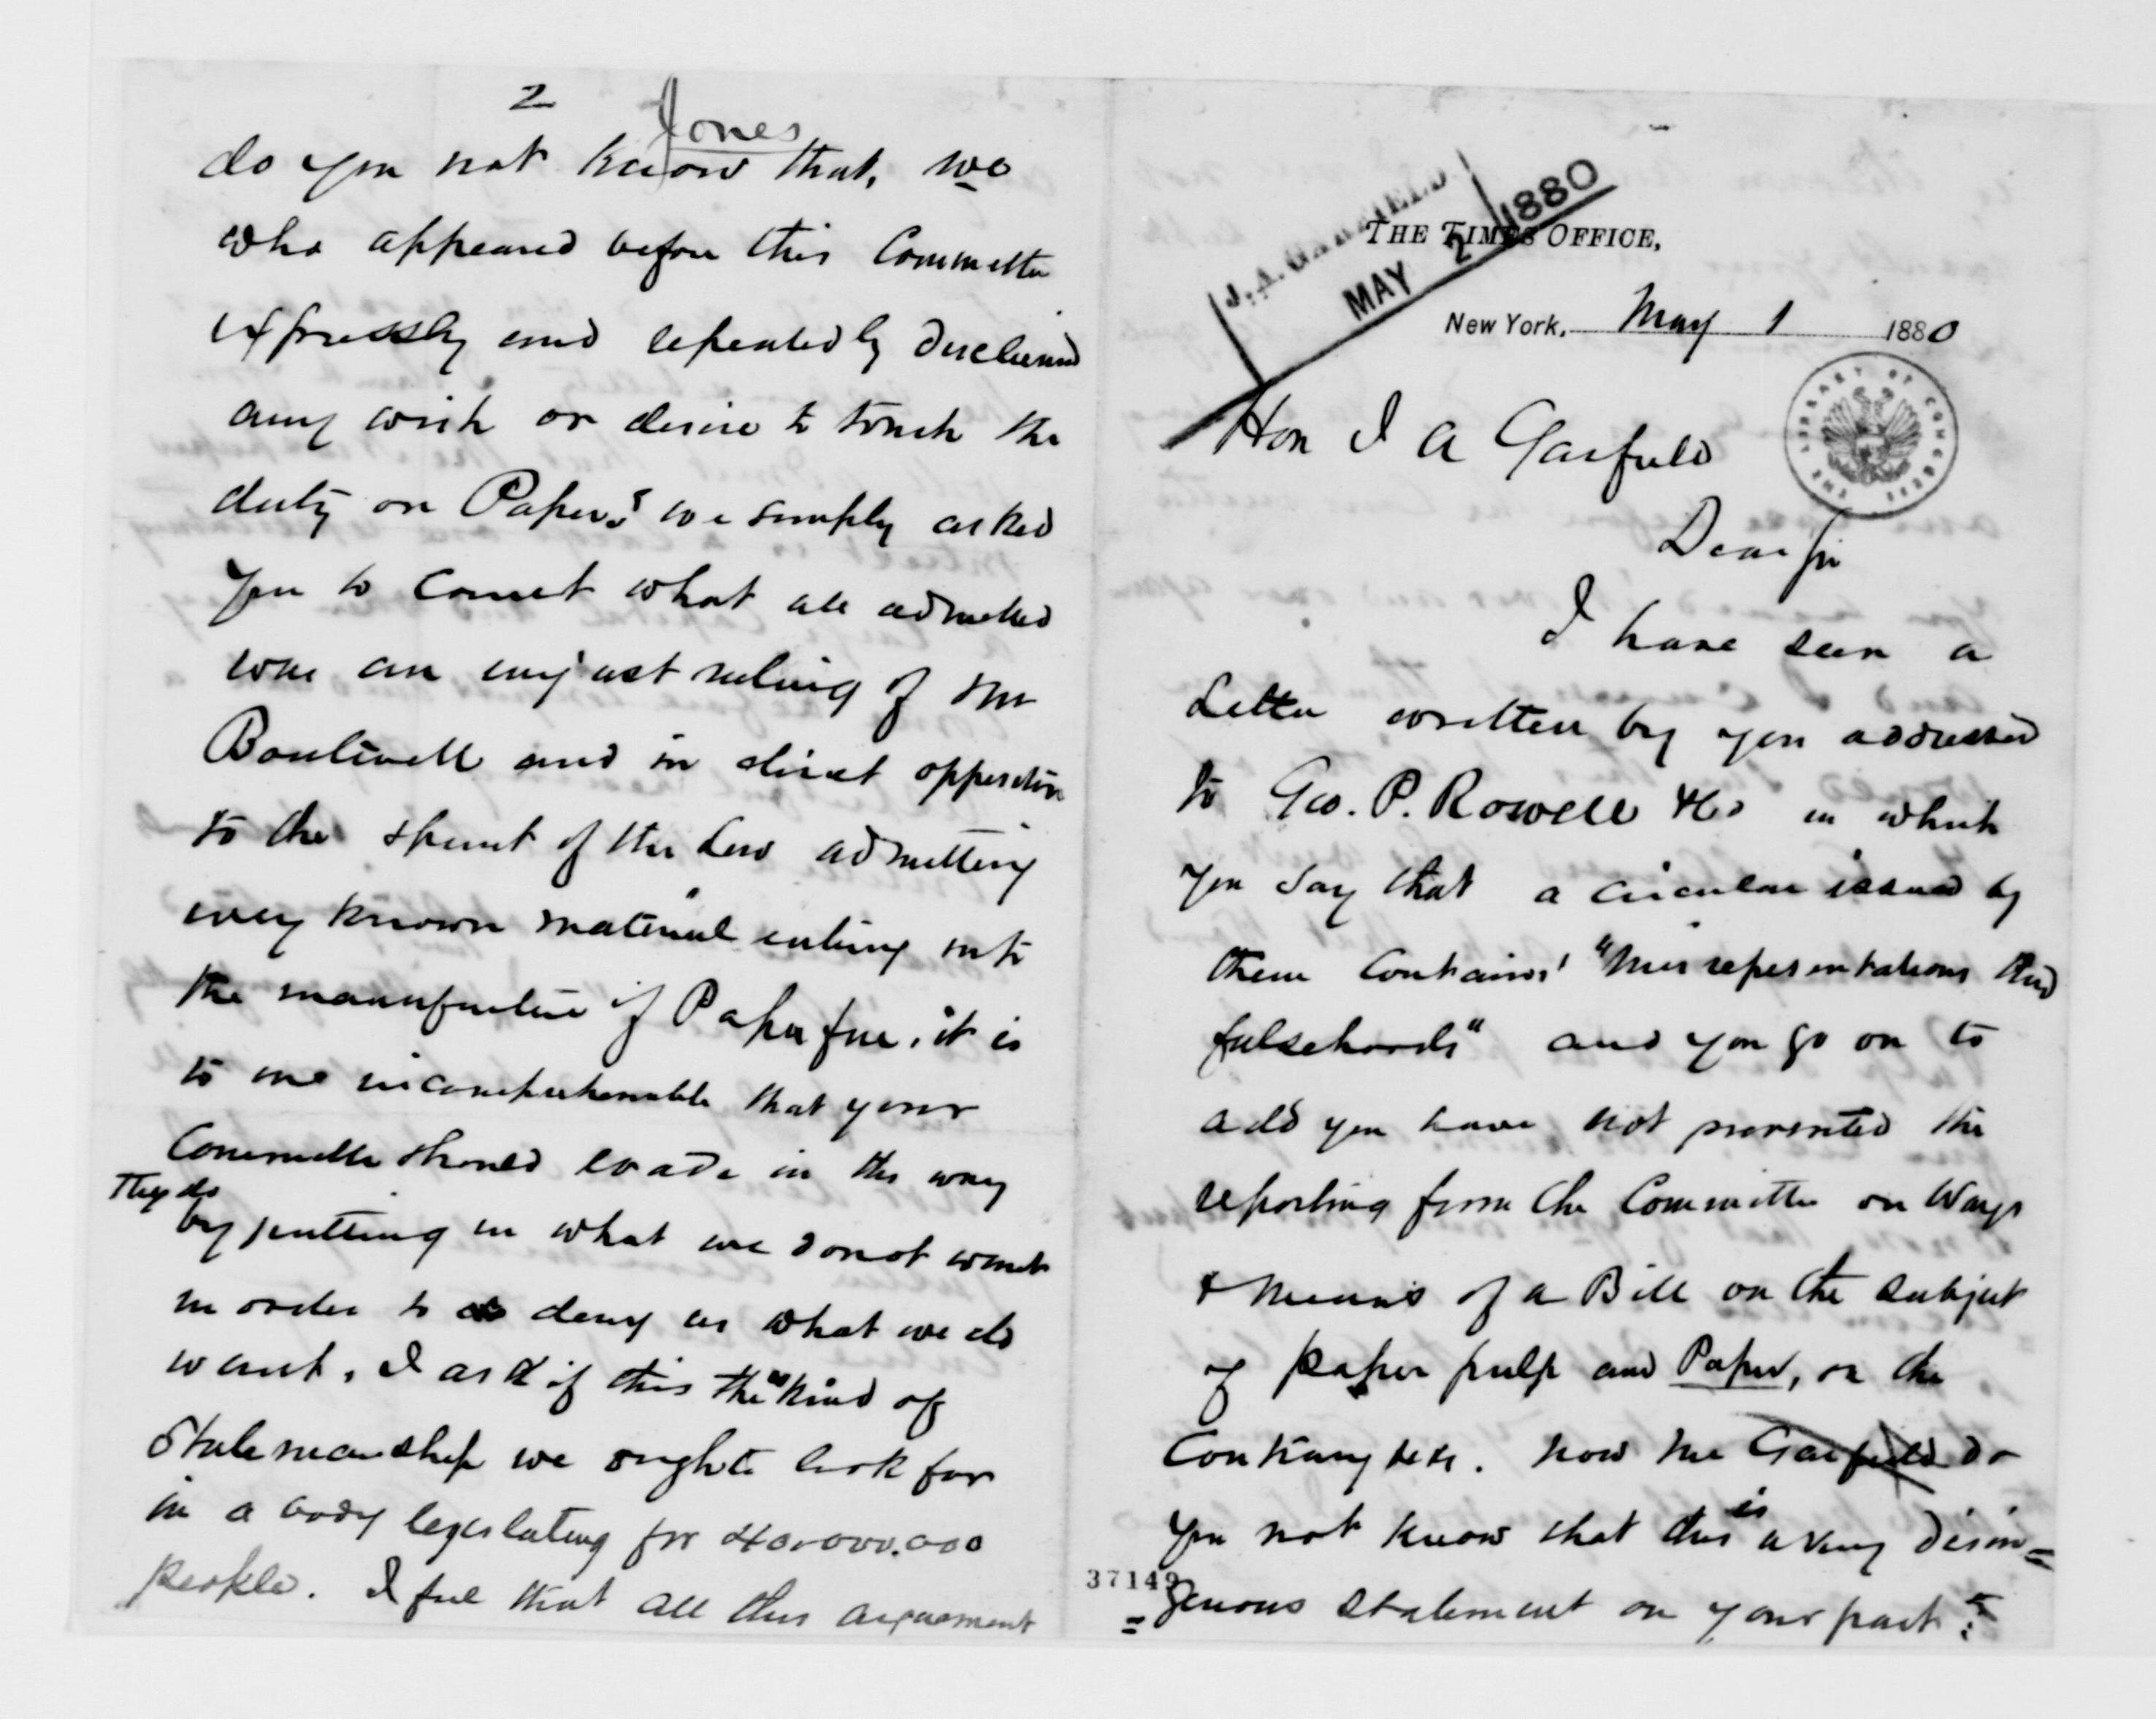 THE TIMES OFFICE,
J. A. GARFIELD
MAY 2 1880
New York, May 1 1880
Hon J A Garfield
Dear Sir
I have seen a
Letter written by you addressed
to Geo. P. Rowell & Co in which
you say that a circular issued by
them contains "Misrepresentations and
falsehoods" and you go on to
add you have not prevented the
reporting from the Committee on Ways
& Means of a Bill on the subject
of paper pulp and Paper, on the
Contrary &c &c. Now Mr Garfield do
you not know that this is a very disin=
=genuous statement on your part:
37149
2
Jones
do you not know that, we
who appeared before this Committee
expressly and repeatedly disclaimed
any wish or desire to touch the
duty on Paper? we simply asked
you to correct what all admitted
was an unjust ruling of Mr
Boutwell and in direct opposition
to the spirit of the Law admitting
every known material entering into
the manufacture of Paper free. it is
to me incomprehensible that your
Committee should evade in the way
They do
by putting in what we do not want
in order to deny us what we do
want. I ask if this the kind of
Statesmanship we ought to look for
in a body legislating for 40,000,000
people. I feel that all this arguement